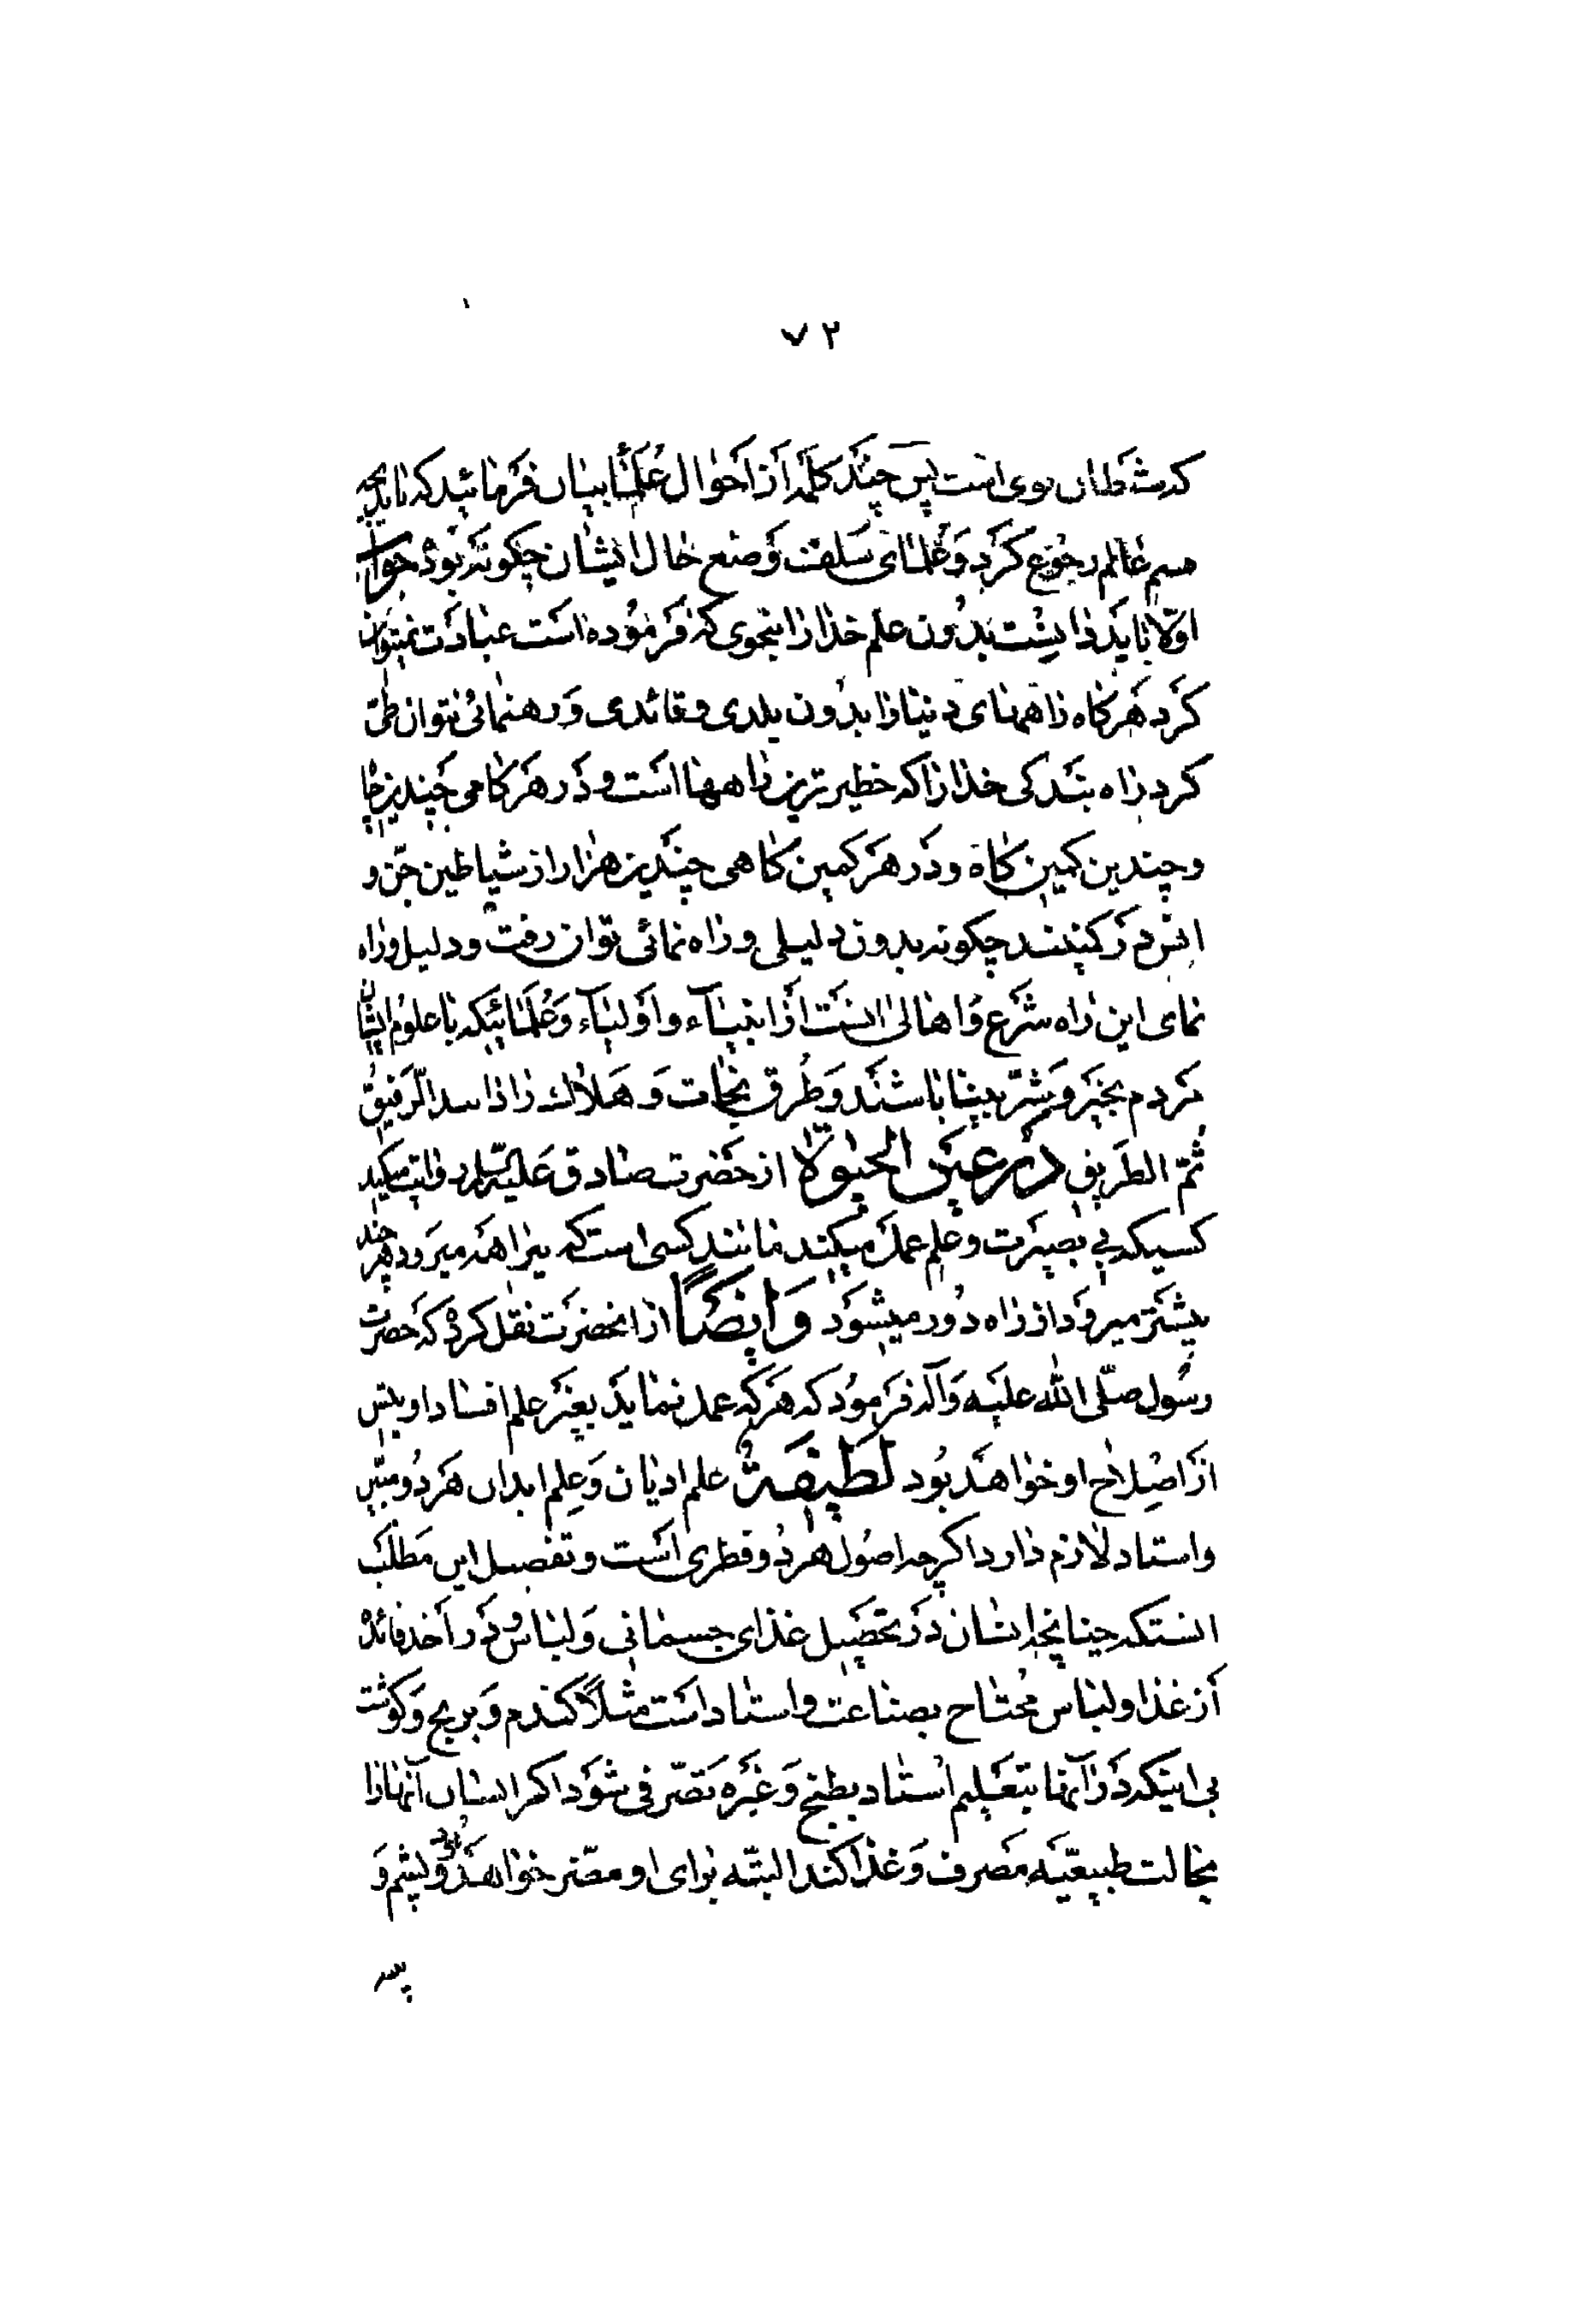 ۷۲
پس چند کلمه از احوال علما بیان فرمائید که باید بچه
قسم عالم رجوع کرد و علمای سلف وضع حال ایشان چکونه بوده جواب
اولا باید دانست بدون علم خدا را بنحوی که فرموده است عبادت نمیتوان
کرد هرکاه راههای دنیا را بدون بلدی و قائدی و رهنمائی نتوان طی
کرد راه بندکی خدا را که خطیرترین راهها است و در هر کامی چندین چاه
و چندین کمین کاه و در هر کمین کاهی چندین هزار از شیاطین جن و
انس در کمینند چکونه بدون دلیلی و راه نمائی توان رفت و دلیل و راه
نمای این راه شرع و اهالی انست از انبیآء و اولیآء و علمائیکه با علوم ایشان
مردم بخیر و شر بینا باشند و طرق نجات و هلاک را دانند الرفیق
ثم الطریق در عین الحیوة از حضرت صادق علیه السلام روایت میکند
کسیکه بی بصیرت و علم عمل میکند مانند کسی است که بیراهه میرود هر چند
بیشتر میرود از راه دور میشود و ایضًا از انحضرت نقل کرده که حضرت
رسول صلّی الله علیه و آله فرمود که هر که عمل نماید بغیر علم افساد او بیش
از اصلاح او خواهد بود لطیفة علم ادیان و علم ابدان هر دو مبین
و استاد لازم دارد اکرچه اصول هر دو فطری است و تفصیل این مطلب
انستکه چنانچه انسان در تحصیل غذای جسمانی و لباس و در اخذ فائده
از غذا و لباس محتاج بصناعت و استاد است مثلًا کندم و برنج و کوشت
بی اینکه در آنها بتعلیم استاد بطبخ و غیره تصرفی شود اکر انسان آنها را
بحالت طبیعیّه مصرف و غذا کند البتّه برای او مضر خواهد بود و پشم و